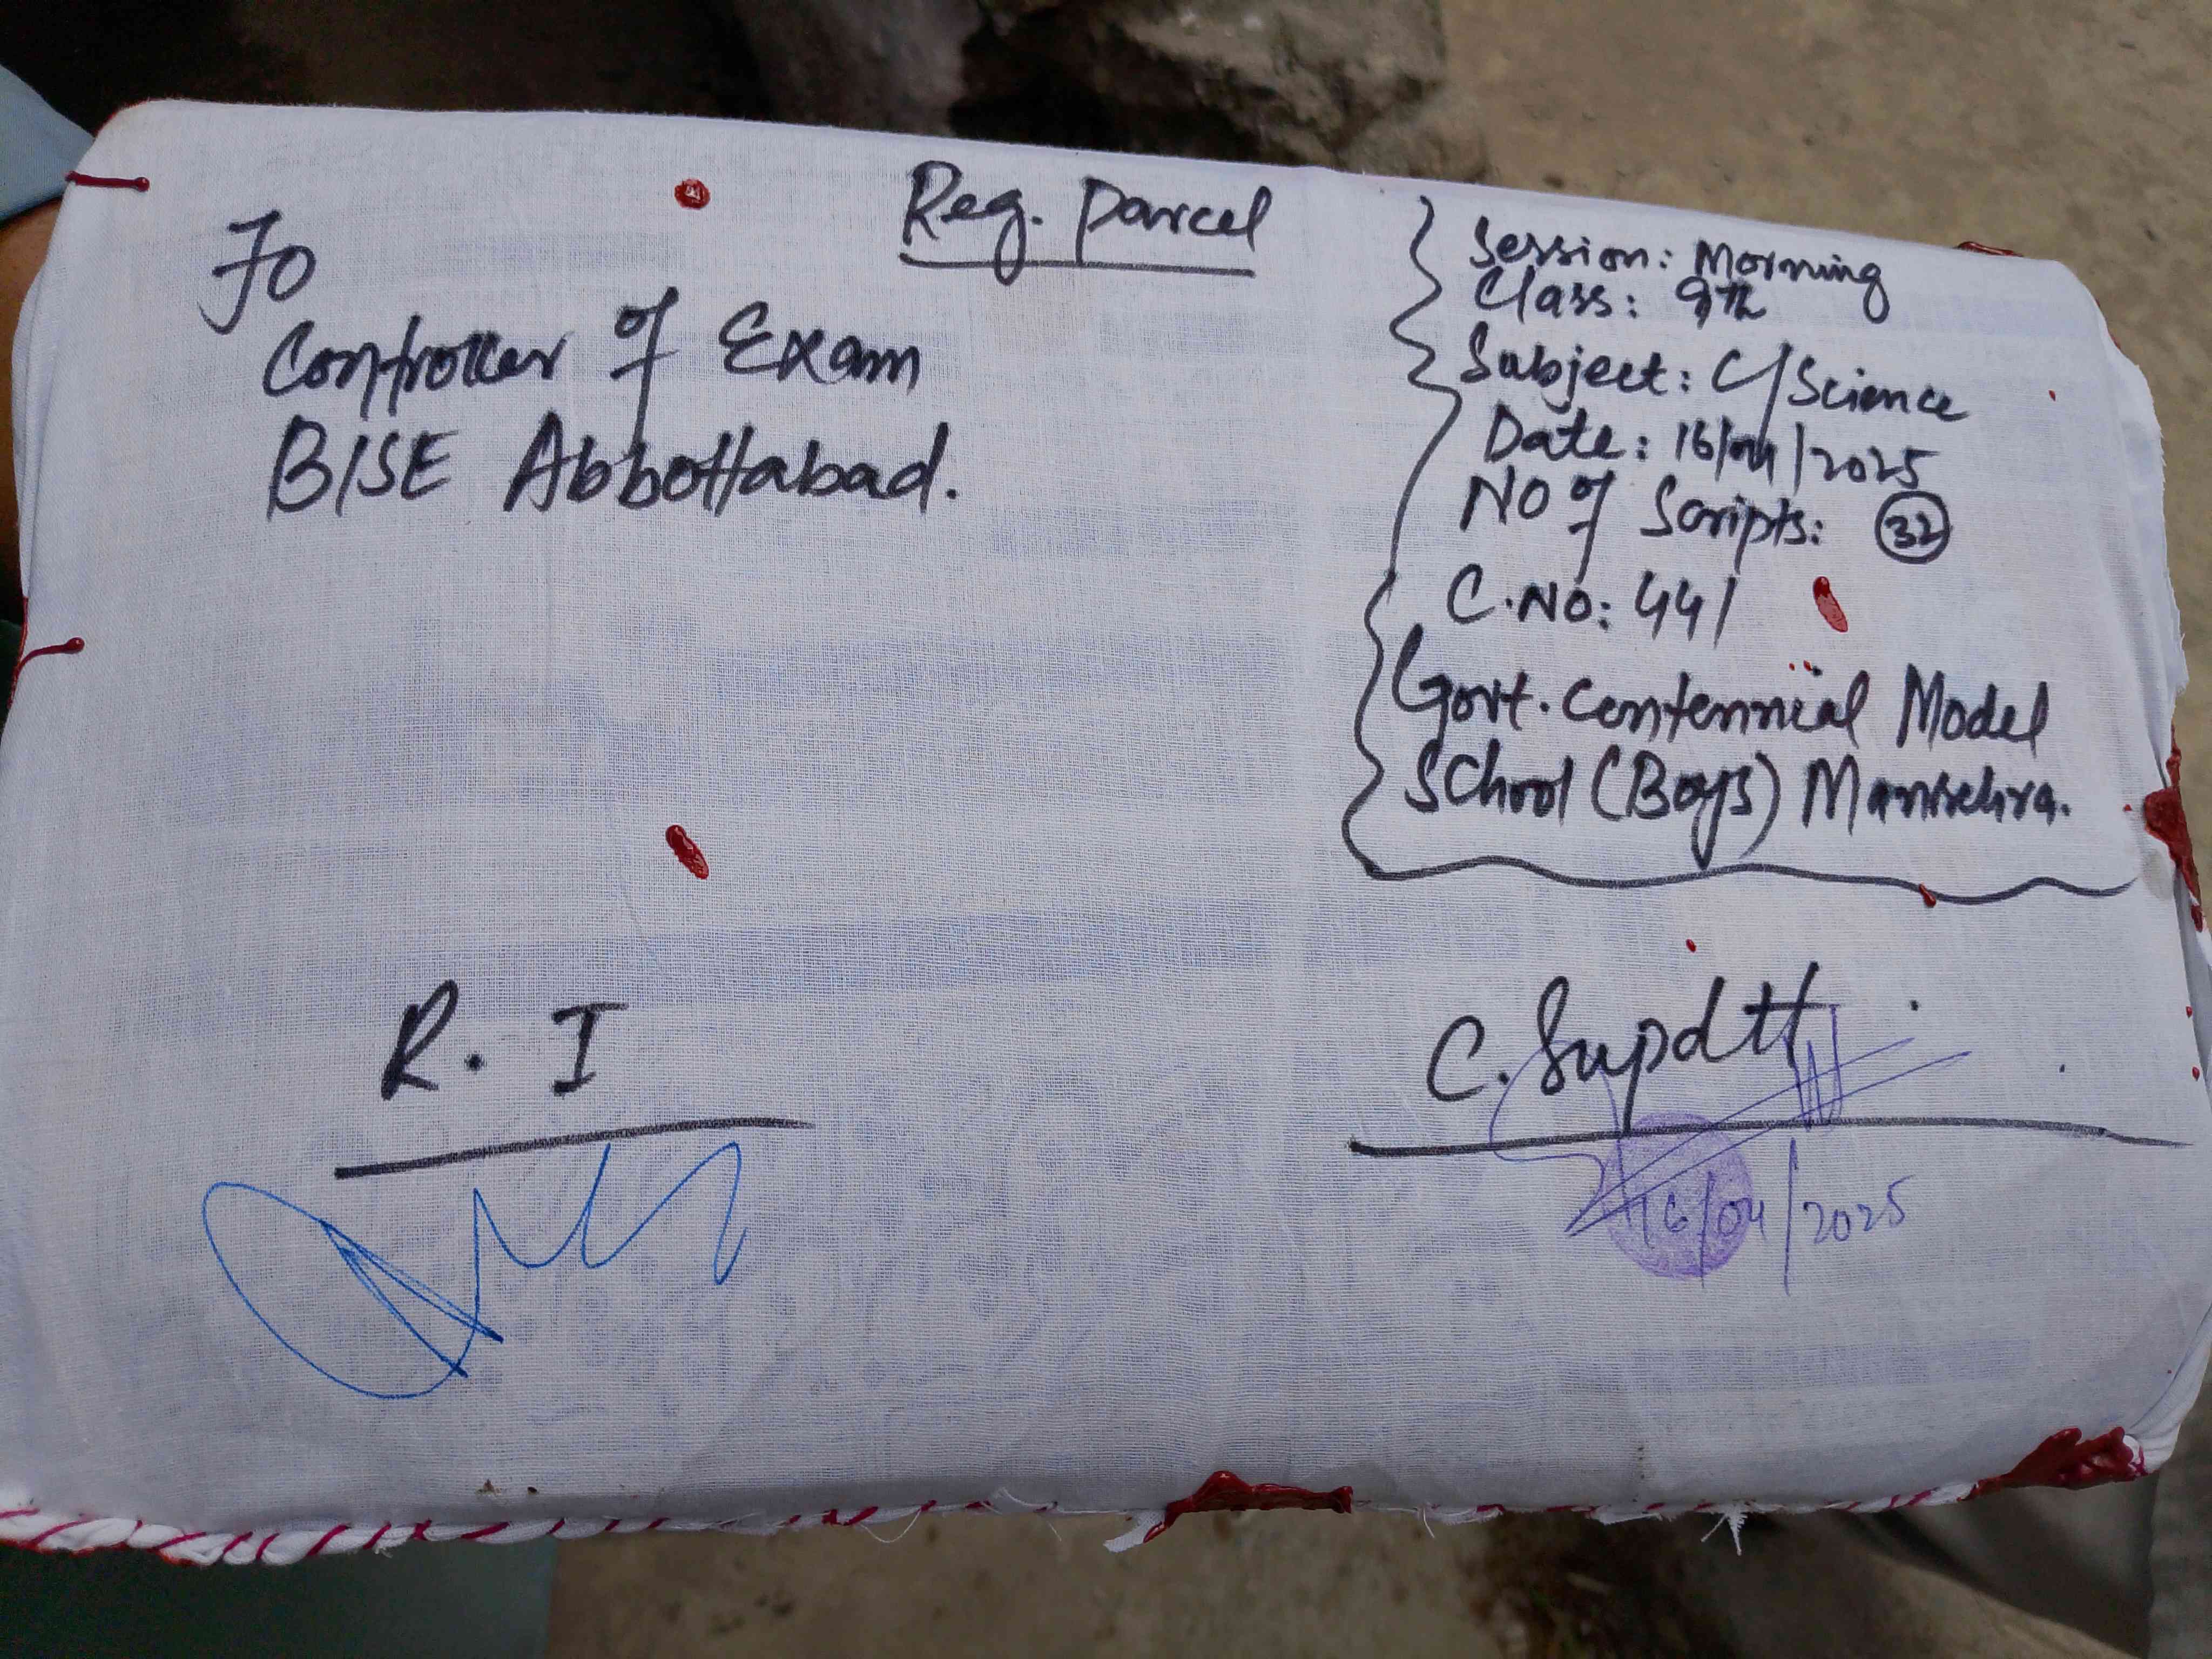 Reg. Parcel
To
Controller of Exam
BISE Abbottabad.
Session: Morning
Class: 9th
Subject: C/Science
Date: 16/04/2025
NO of Scripts: 32
C.NO: 441
Govt. Centennial Model
School (Boys) Mansehra.
R. I
C. Supdtt
16/04/2025